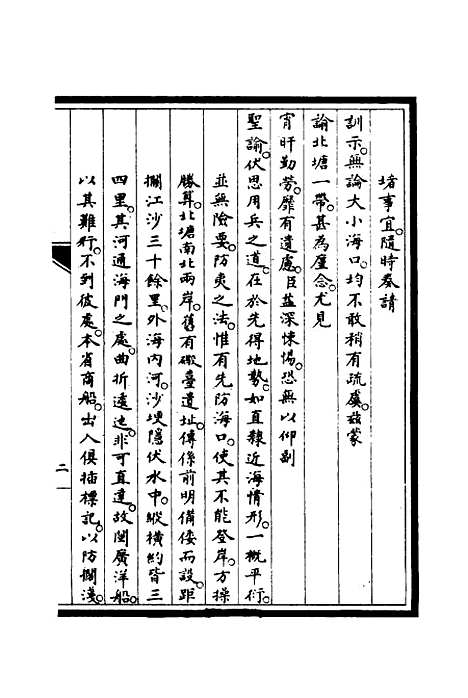 堵事宜。隨時奏請
訓示。無論大小海口。均不敢稍有疏虞。茲蒙
諭北塘一帶。甚為廑念。尤見
宵旰勤勞。靡有遺慮。臣益深悚惕。恐無以仰副
聖諭。伏思用兵之道。在於先得地勢。如直隸近海情形。一概平衍。
並無險要。防夷之法。惟有先防海口。使其不能登岸。方操
勝算。北塘南北兩岸。舊有礮臺遺址。傳係前明備倭而設。距
攔江沙三十餘里。外海內河。沙埂隱伏水中。縱橫約皆三
四里。其河通海門之處。曲折遠迤。非可直達。故閩廣洋船。
以其難行。不到彼處。本省商船。出入俱插標記。以防攔淺。
二一